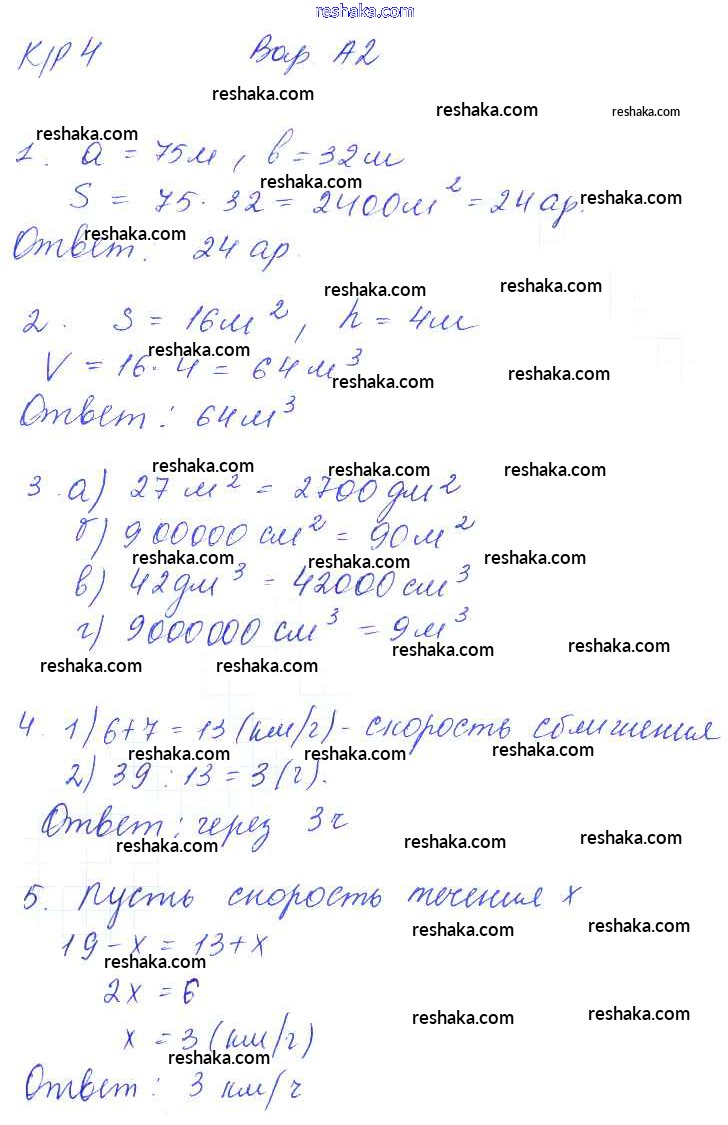 reshaka.com
К/Р 4 Вар А2
reshaka.com
reshaka.com reshaka.com
reshaka.com
1. a = 75м, b = 32м
reshaka.com
S = 75 · 32 = 2400м² = 24 ар.
reshaka.com
reshaka.com
Ответ: 24 ар.
reshaka.com reshaka.com
2. S = 16м², h = 4м
reshaka.com
V = 16 · 4 = 64м³
reshaka.com reshaka.com
Ответ: 64м³
reshaka.com reshaka.com reshaka.com
3. а) 27 м² = 2700 дм²
б) 900000 см² = 90м²
reshaka.com reshaka.com reshaka.com
в) 42дм³ = 42000 см³
г) 9000000 см³ = 9м³
reshaka.com reshaka.com
reshaka.com reshaka.com
4. 1) 6+7 = 13 (км/ч) - скорость сближения
reshaka.com reshaka.com reshaka.com
2) 39 : 13 = 3 (ч).
Ответ: через 3 ч
reshaka.com reshaka.com reshaka.com
5. Пусть скорость течения x
reshaka.com reshaka.com
19 - x = 13 + x
reshaka.com
2x = 6
reshaka.com reshaka.com
x = 3 (км/ч)
reshaka.com
Ответ: 3 км/ч